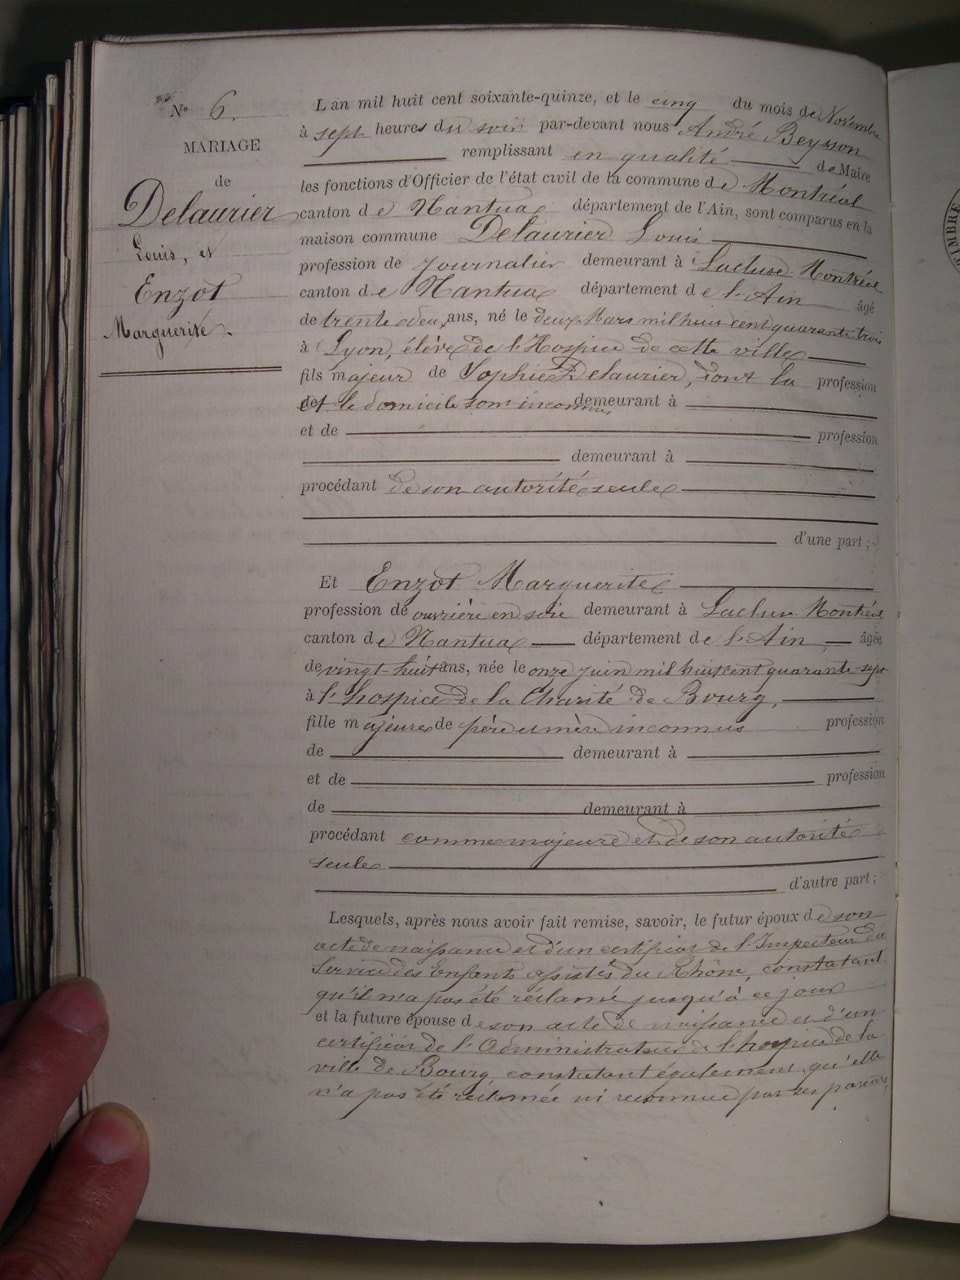 N° 6.
MARIAGE
de
Delaurier
Louis, et
Enzot
Marguerite
L'an mil huit cent soixante-quinze, et le cinq du mois de Novembre
à sept heures du soir par-devant nous André Beysson
remplissant en qualité de Maire
les fonctions d'Officier de l'état civil de la commune de Montréal
canton de Nantua département de l'Ain, sont comparus en la
maison commune Delaurier Louis
profession de Journalier demeurant à Lacluse Montréal
canton de Nantua département de l'Ain âgé
de trente deux ans, né le deux Mars mil huit cent quarante trois
à Lyon, élève de l'Hospice de cette ville
fils majeur de Sophie Delaurier, dont la profession
de et le domicile sont inconnus demeurant à
et de profession
demeurant à
procédant de son autorité seule
d'une part ;
Et Enzot Marguerite
profession de ouvrière en soie demeurant à Lacluse Montréal
canton de Nantua département de l'Ain âgée
de vingt-huit ans, née le onze juin mil huit cent quarante sept
à l'hospice de la Charité de Bourg,
fille majeure de père et mère inconnus profession
de demeurant à
et de profession
de demeurant à
procédant comme majeure et de son autorité
seule
d'autre part ;
Lesquels, après nous avoir fait remise, savoir, le futur époux de son
acte de naissance et d'un certificat de l'Inspecteur du
Service des Enfants assistés du Rhône, constatant
qu'il n'a pas été réclamé jusqu'à ce jour
et la future épouse de son acte de naissance et d'un
certificat de l'Administrateur de l'hospice de la
ville de Bourg constatant également qu'elle
n'a pas été réclamée ni reconnue par ses parents,